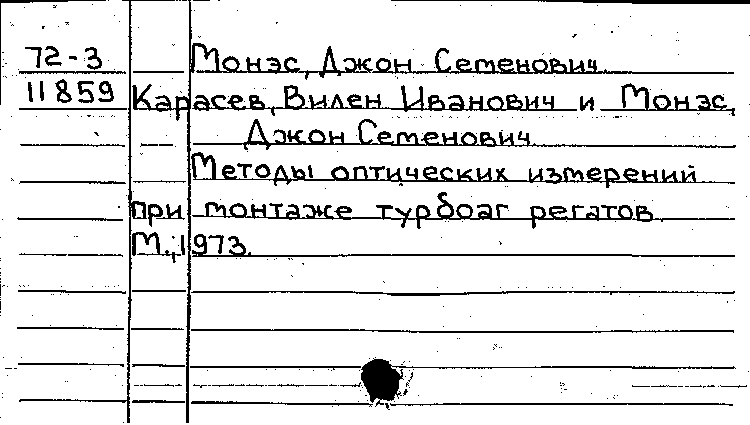 72-3 Монэс, Джон Семенович
11859 Карасев, Вилен Иванович и Монэс,
Джон Семенович
Методы оптических измерений
при монтаже турбоаг регатов.
М., 1973.